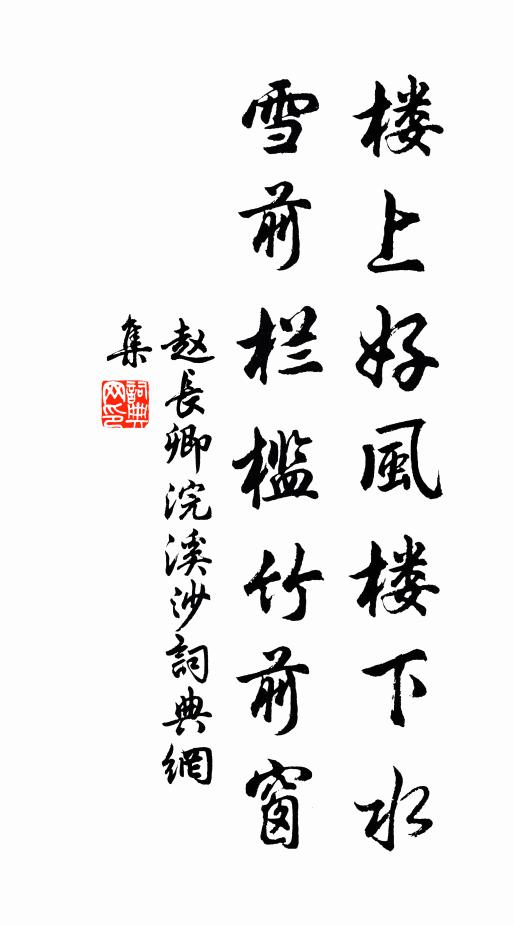 楼上好風楼下水
雪前栏槛竹前窗
赵長卿浣溪沙詞典網
集
詞典網印